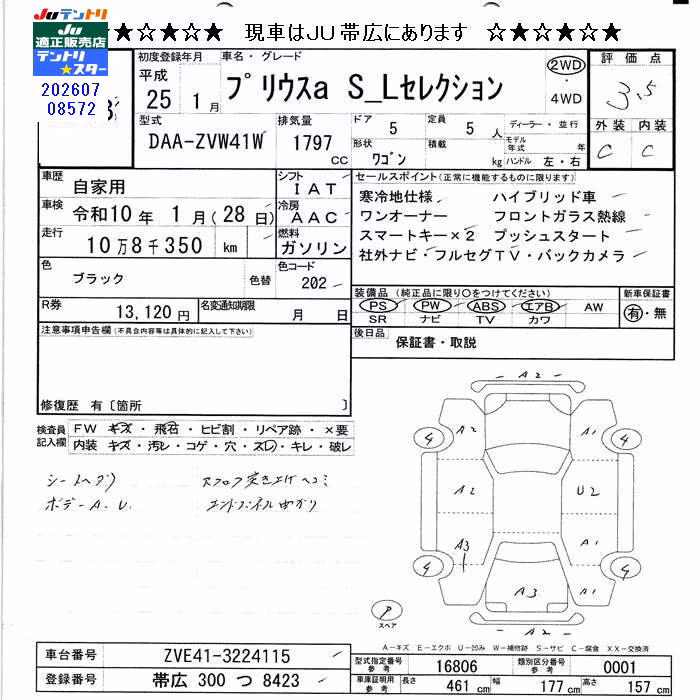 JUテントリ
JU
適正販売店
テントリ
★スター
★☆★☆★☆ 現車はJU帯広にあります ☆★☆★☆★☆
202607
08572
初度登録年月
平成
25年 1月
車名・グレード
プリウスα S_Lセレクション
2WD
・
4WD
評価点
3.5
外装 内装
C C
型式
DAA-ZVW41W
排気量
1797
CC
ドア
5
定員
5 人
ディーラー・並行
形状
ワゴン
積載
kg
モデル年式 年
ハンドル 左・右
車歴
自家用
シフト
IAT
車検
令和10年 1月(28日)
冷房
AAC
走行
10万8千350 km
燃料
ガソリン
色
ブラック
色替
色コード
202
R券
13,120円
名変通知期限
月 日
セールスポイント(正常に機能するものに限ります)
寒冷地仕様 ハイブリッド車
ワンオーナー フロントガラス熱線
スマートキー×2 プッシュスタート
社外ナビ・フルセグTV・バックカメラ
装備品(純正品に限り○をつけてください)
PS PW ABS エアB AW
SR ナビ TV カワ
新車保証書
有・無
後日品
保証書・取説
注意事項申告欄(不具合内容等は具体的に記入して下さい)
修復歴 有〔箇所 〕
検査員記入欄
FW キズ・飛石・ヒビ割・リペア跡・×要
内装 キズ・汚レ・コゲ・穴・スレ・キレ・破レ
シートヘタリ
スフロア突き上げヘコミ
ボデーA.U.
エンドパネル曲がり
A2
4 A2 A1 4
A2 U2
A3 A1
4 A3 A1 4
A2
P
スペア
A-キズ E-エクボ U-凹み W-補修跡 S-サビ C-腐食 XX-交換済
車台番号
ZVE41-3224115
登録番号
帯広 300 つ 8423
型式指定番号
参考
16806
類別区分番号
参考
0001
車庫証明用
参考
長さ
461 cm
幅
177 cm
高さ
157 cm